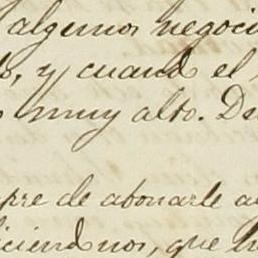 algunos negoci
, y cuando el
muy alto. De
pre de abonarle a
iciendonos, que